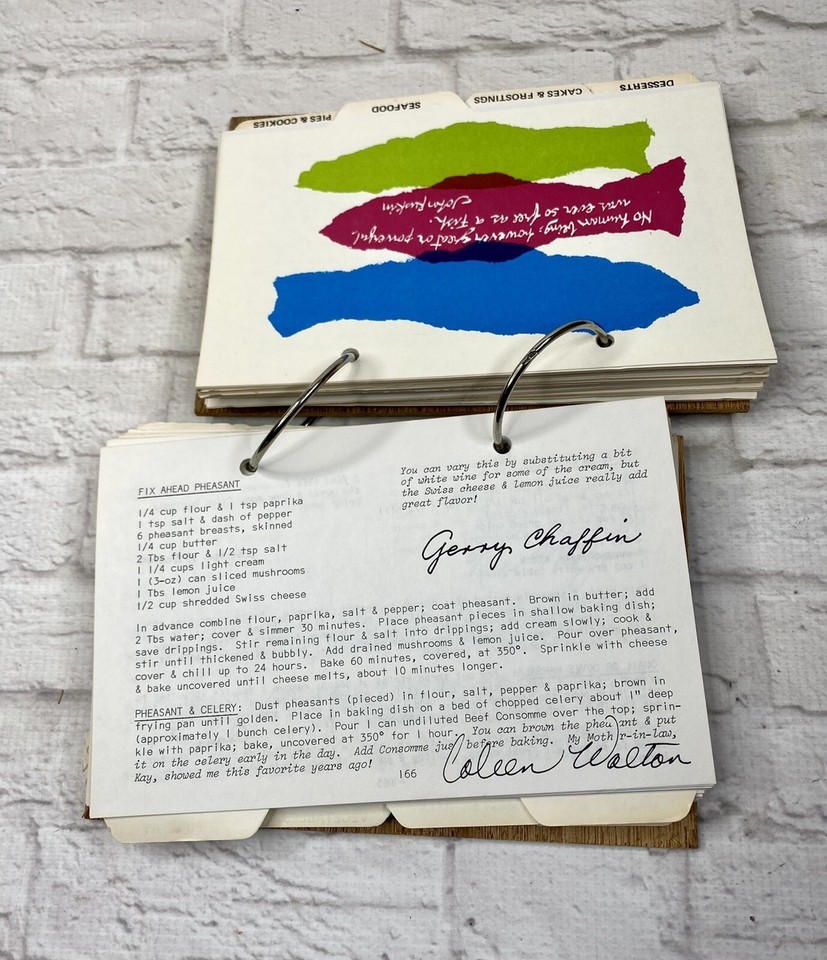 PIES & COOKIES
SEAFOOD
CAKES & FROSTINGS
DESSERTS
No human being, however great or powerful,
was ever so free as a fish.
John Ruskin
FIX AHEAD PHEASANT
1/4 cup flour & 1 tsp paprika
1 tsp salt & dash of pepper
6 pheasant breasts, skinned
1/4 cup butter
2 Tbs flour & 1/2 tsp salt
1 1/4 cups light cream
1 (3-oz) can sliced mushrooms
1 Tbs lemon juice
1/2 cup shredded Swiss cheese
You can vary this by substituting a bit
of white wine for some of the cream, but
the Swiss cheese & lemon juice really add
great flavor!
Gerry Chaffin
In advance combine flour, paprika, salt & pepper; coat pheasant. Brown in butter; add
2 Tbs water; cover & simmer 30 minutes. Place pheasant pieces in shallow baking dish;
save drippings. Stir remaining flour & salt into drippings; add cream slowly; cook &
stir until thickened & bubbly. Add drained mushrooms & lemon juice. Pour over pheasant,
cover & chill up to 24 hours. Bake 60 minutes, covered, at 350°. Sprinkle with cheese
& bake uncovered until cheese melts, about 10 minutes longer.
PHEASANT & CELERY: Dust pheasants (pieced) in flour, salt, pepper & paprika; brown in
frying pan until golden. Place in baking dish on a bed of chopped celery about 1" deep
(approximately 1 bunch celery). Pour 1 can undiluted Beef Consomme over the top; sprin-
kle with paprika; bake, uncovered at 350° for 1 hour. You can brown the pheasant & put
it on the celery early in the day. Add Consomme just before baking. My Mother-in-law,
Kay, showed me this favorite years ago!
Coleen Walton
166